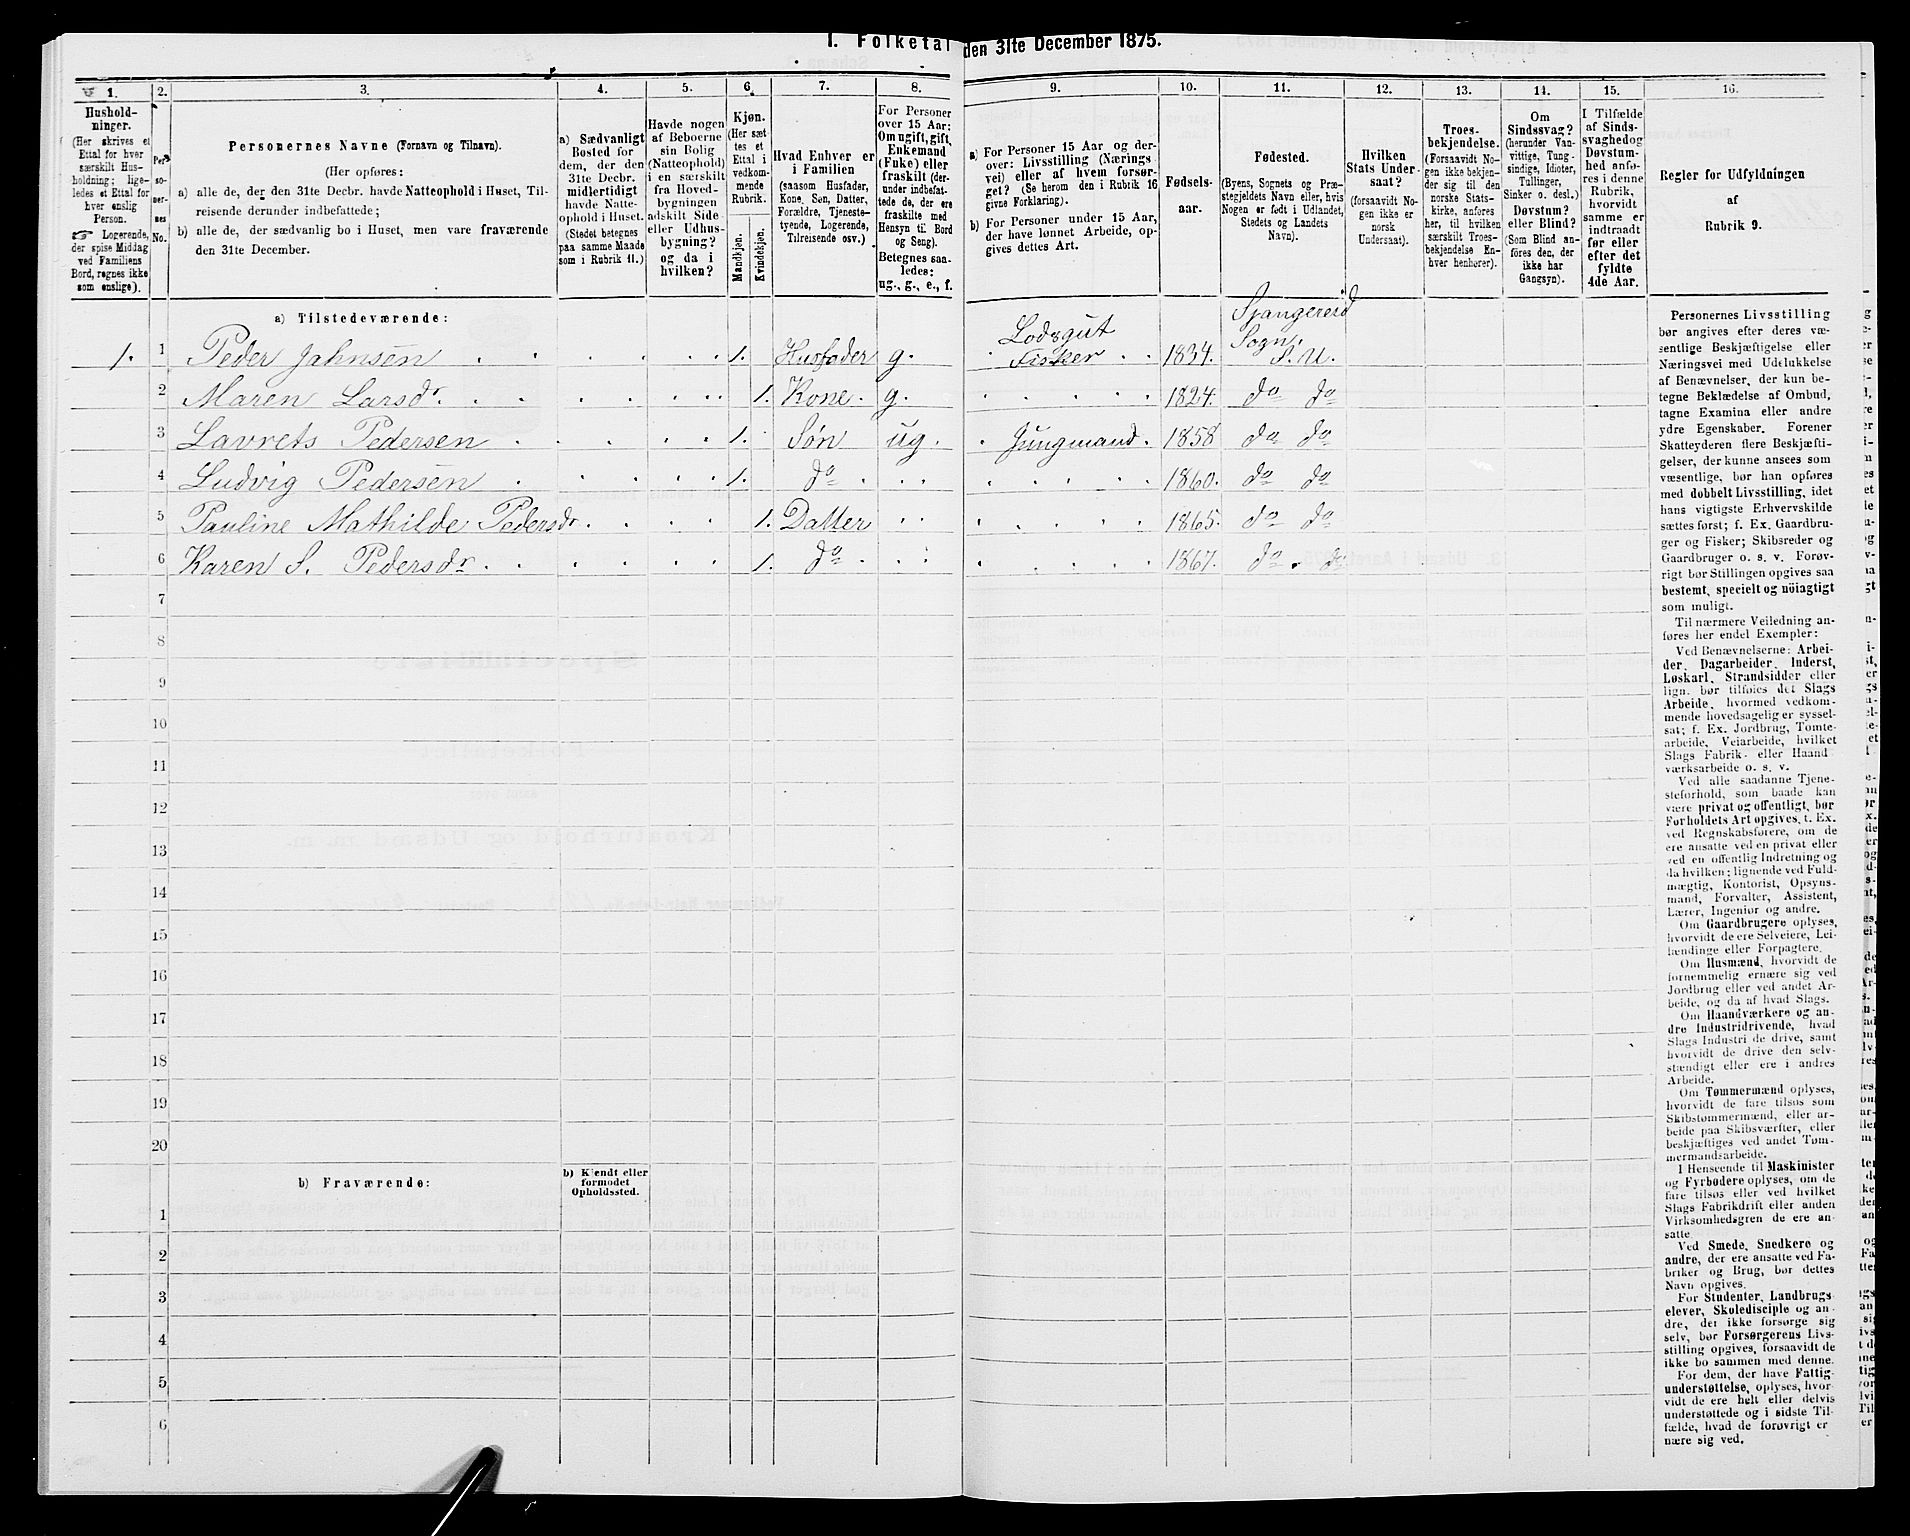 I. Folketal den 31te December 1875.
1. 2. 3. 4. 5. 6. 7. 8. 9. 10. 11. 12. 13. 14. 15. 16.
Hushold-
ninger.
(Her skrives et
Ettal for hver
særskilt Hus-
holdning; lige-
ledes et Ettal for
hver enslig
Person.
☞ Logerende,
der spise Middag
ved Familiens
Bord, regnes ikke
som enslige).
Per-
so-
ner-
nes
No.
Personernes Navne (Fornavn og Tilnavn).
(Her opføres:
a) alle de, der den 31te Decbr. havde Natteophold i Huset, Til-
reisende derunder indbefattede;
b) alle de, der sædvanlig bo i Huset, men vare fraværende
den 31te December.
a) Sædvanligt
Bosted for
dem, der den
31te Decbr.
midlertidigt
havde Natte-
ophold i Huset.
(Stedet betegnes
paa samme Maade
som i Rubrik 11.)
Havde nogen
af Beboerne
sin Bolig
(Natteophold)
i en særskilt
fra Hoved-
bygningen
adskilt Side-
eller Udhus-
bygning?
og da i
hvilken?
Kjøn.
(Her sæt-
tes et
Ettal i
vedkom-
mende
Rubrik.
Mandkjøn.
Kvindekjøn.
Hvad Enhver er
i Familien
(saasom Husfader,
Kone, Søn, Datter,
Forældre, Tjeneste-
tyende, Logerende,
Tilreisende osv.)
For Personer
over 15 Aar:
Om ugift, gift,
Enkemand
(Enke) eller
fraskilt (der-
under indbefat-
tede de, der ere
fraskilte med
Hensyn til Bord
og Seng).
Betegnes saa-
ledes:
ug., g., e., f.
a) For Personer 15 Aar og der-
over: Livsstilling (Nærings-
vei) eller af hvem forsør-
get? (Se herom den i Rubrik 16
givne Forklaring).
b) For Personer under 15 Aar,
der have lønnet Arbeide, op-
gives dettes Art.
Fødsels-
aar.
Fødested.
(Byens, Sognets og Præ-
stegjeldets Navn eller, hvis
Nogen er født i Udlandet,
Stedets og Landets
Navn).
Hvilken
Stats Under-
saat?
(forsaavidt No-
gen ikke er
norsk
Undersaat).
Troes-
bekjendelse.
(Forsaavidt No-
gen ikke bekjen-
der sig til den
norske Stats-
kirke, anføres
her, til hvilken
særskilt Troes-
bekjendelse En-
hver henhører).
Om
Sindssvag?
(herunder Van-
vittige, Tung-
sindige, Idioter,
Tullinger,
Sinker o. desl.)
Døvstum?
eller Blind?
(Som Blind an-
føres den, der
ikke har
Gangsyn).
I Tilfælde
af Sinds-
svaghed og
Døvstum-
hed anfø-
res i denne
Rubrik,
hvorvidt
samme er
indtraadt
før eller
efter det
fyldte
4de Aar.
Regler for Udfyldningen
af
Rubrik 9.
a) Tilstedeværende:
1. 1 Peder Jahnsen 1. Husfader g. Lodsgut Fisker 1834. Sjangereid Sogn. S. U.
2 Maren Larsdr. 1. Kone. g. 1824. do do
3 Lavrets Pedersen 1. Søn ug. Jungmand. 1858 do do
4 Ludvig Pedersen 1. do 1860. do do
5 Pauline Mathilde Pedersdr. 1. Datter 1865. do do
6 Karen S. Pedersdr. 1. do 1867. do do
7
8
9
10
11
12
13
14
15
16
17
18
19
20
b) Fraværende:
b) Kjendt eller
formodet
Opholdssted.
1
2
3
4
5
6
Personernes Livsstilling
bør angives efter deres væ-
sentlige Beskjæftigelse eller
Næringsvei med Udelukkelse
af Benævnelser, der kun be-
tegne Beklædelse af Ombud,
tagne Examina eller andre
ydre Egenskaber. Forener
Skatteyderen flere Beskjæfti-
gelser, der kunne ansees som
væsentlige, bør han opføres
med dobbelt Livsstilling, idet
hans vigtigste Erhvervskilde
sættes først; f. Ex. Gaardbru-
ger og Fisker; Skibsreder og
Gaardbruger o. s. v. Forøv-
rigt bør Stillingen opgives saa
bestemt, specielt og nöiagtigt
som muligt.
Til nærmere Veiledning an-
føres her endel Exempler:
Ved Benævnelserne: Arbei-
der, Dagarbeider, Inderst,
Løskarl, Strandsidder eller
lign. bør tilføies det Slags
Arbeide, hvormed vedkom-
mende hovedsagelig er syssel-
sat; f. Ex. Jordbrug, Tomte-
arbeide, Veiarbeide, hvilket
Slags Fabrik- eller Haand-
værksarbeide o. s. v.
Ved alle saadanne Tjene-
steforhold, som baade kan
være privat og offentligt, bør
Forholdets Art opgives, t. Ex.
ved Regnskabsførere, om de
ere ansatte ved en privat eller
ved en offentlig Indretning og
da hvilken; lignende ved Fuld-
mægtig, Kontorist, Opsyns-
mand, Forvalter, Assistent,
Lærer, Ingeniør og andre.
Om Gaardbrugere oplyses,
hvorvidt de ere Selveiere, Lei-
lændinge eller Forpagtere.
Om Husmænd, hvorvidt de
fornemmelig ernære sig ved
Jordbrug eller ved andet Ar-
beide, og da af hvad Slags.
Om Haandværkere og an-
dre Industridrivende, hvad
Slags Industri de drive, samt
hvorvidt de drive den selv-
stændigt eller ere i andres
Arbeide.
Om Tømmermænd oplyses,
hvorvidt de fare tilsøs som
Skibstømmermænd, eller ar-
beide paa Skibsværfter, eller
beskjæftiges ved andet Tøm-
mermandsarbeide.
I Henseende til Maskinister
og Fyrbødere oplyses, om de
fare tilsøs eller ved hvilket
Slags Fabrikdrift eller anden
Virksomhedsgren de ere an-
satte.
Ved Smede, Snedkere og
andre, der ere ansatte ved Fa-
briker og Brug, bør dettes
Navn opgives.
For Studenter, Landbrugs-
elever, Skoledisciple og an-
dre, der ikke forsørge sig
selv, bør Forsørgerens Livs-
stilling opgives, forsaavidt de
ikke bo sammen med denne.
For dem, der have Fattig-
understøttelse, oplyses, hvor-
vidt de ere helt eller delvis
understøttede og i sidste Til-
fælde, hvad de forøvrigt er-
nære sig ved.